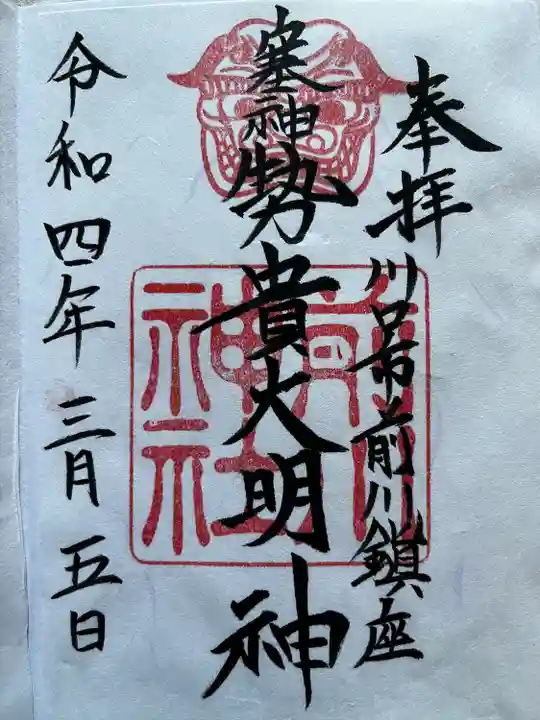 奉拝
川口市前川鎮座
塞神
勢貴大明神
令和四年三月五日
前川神社